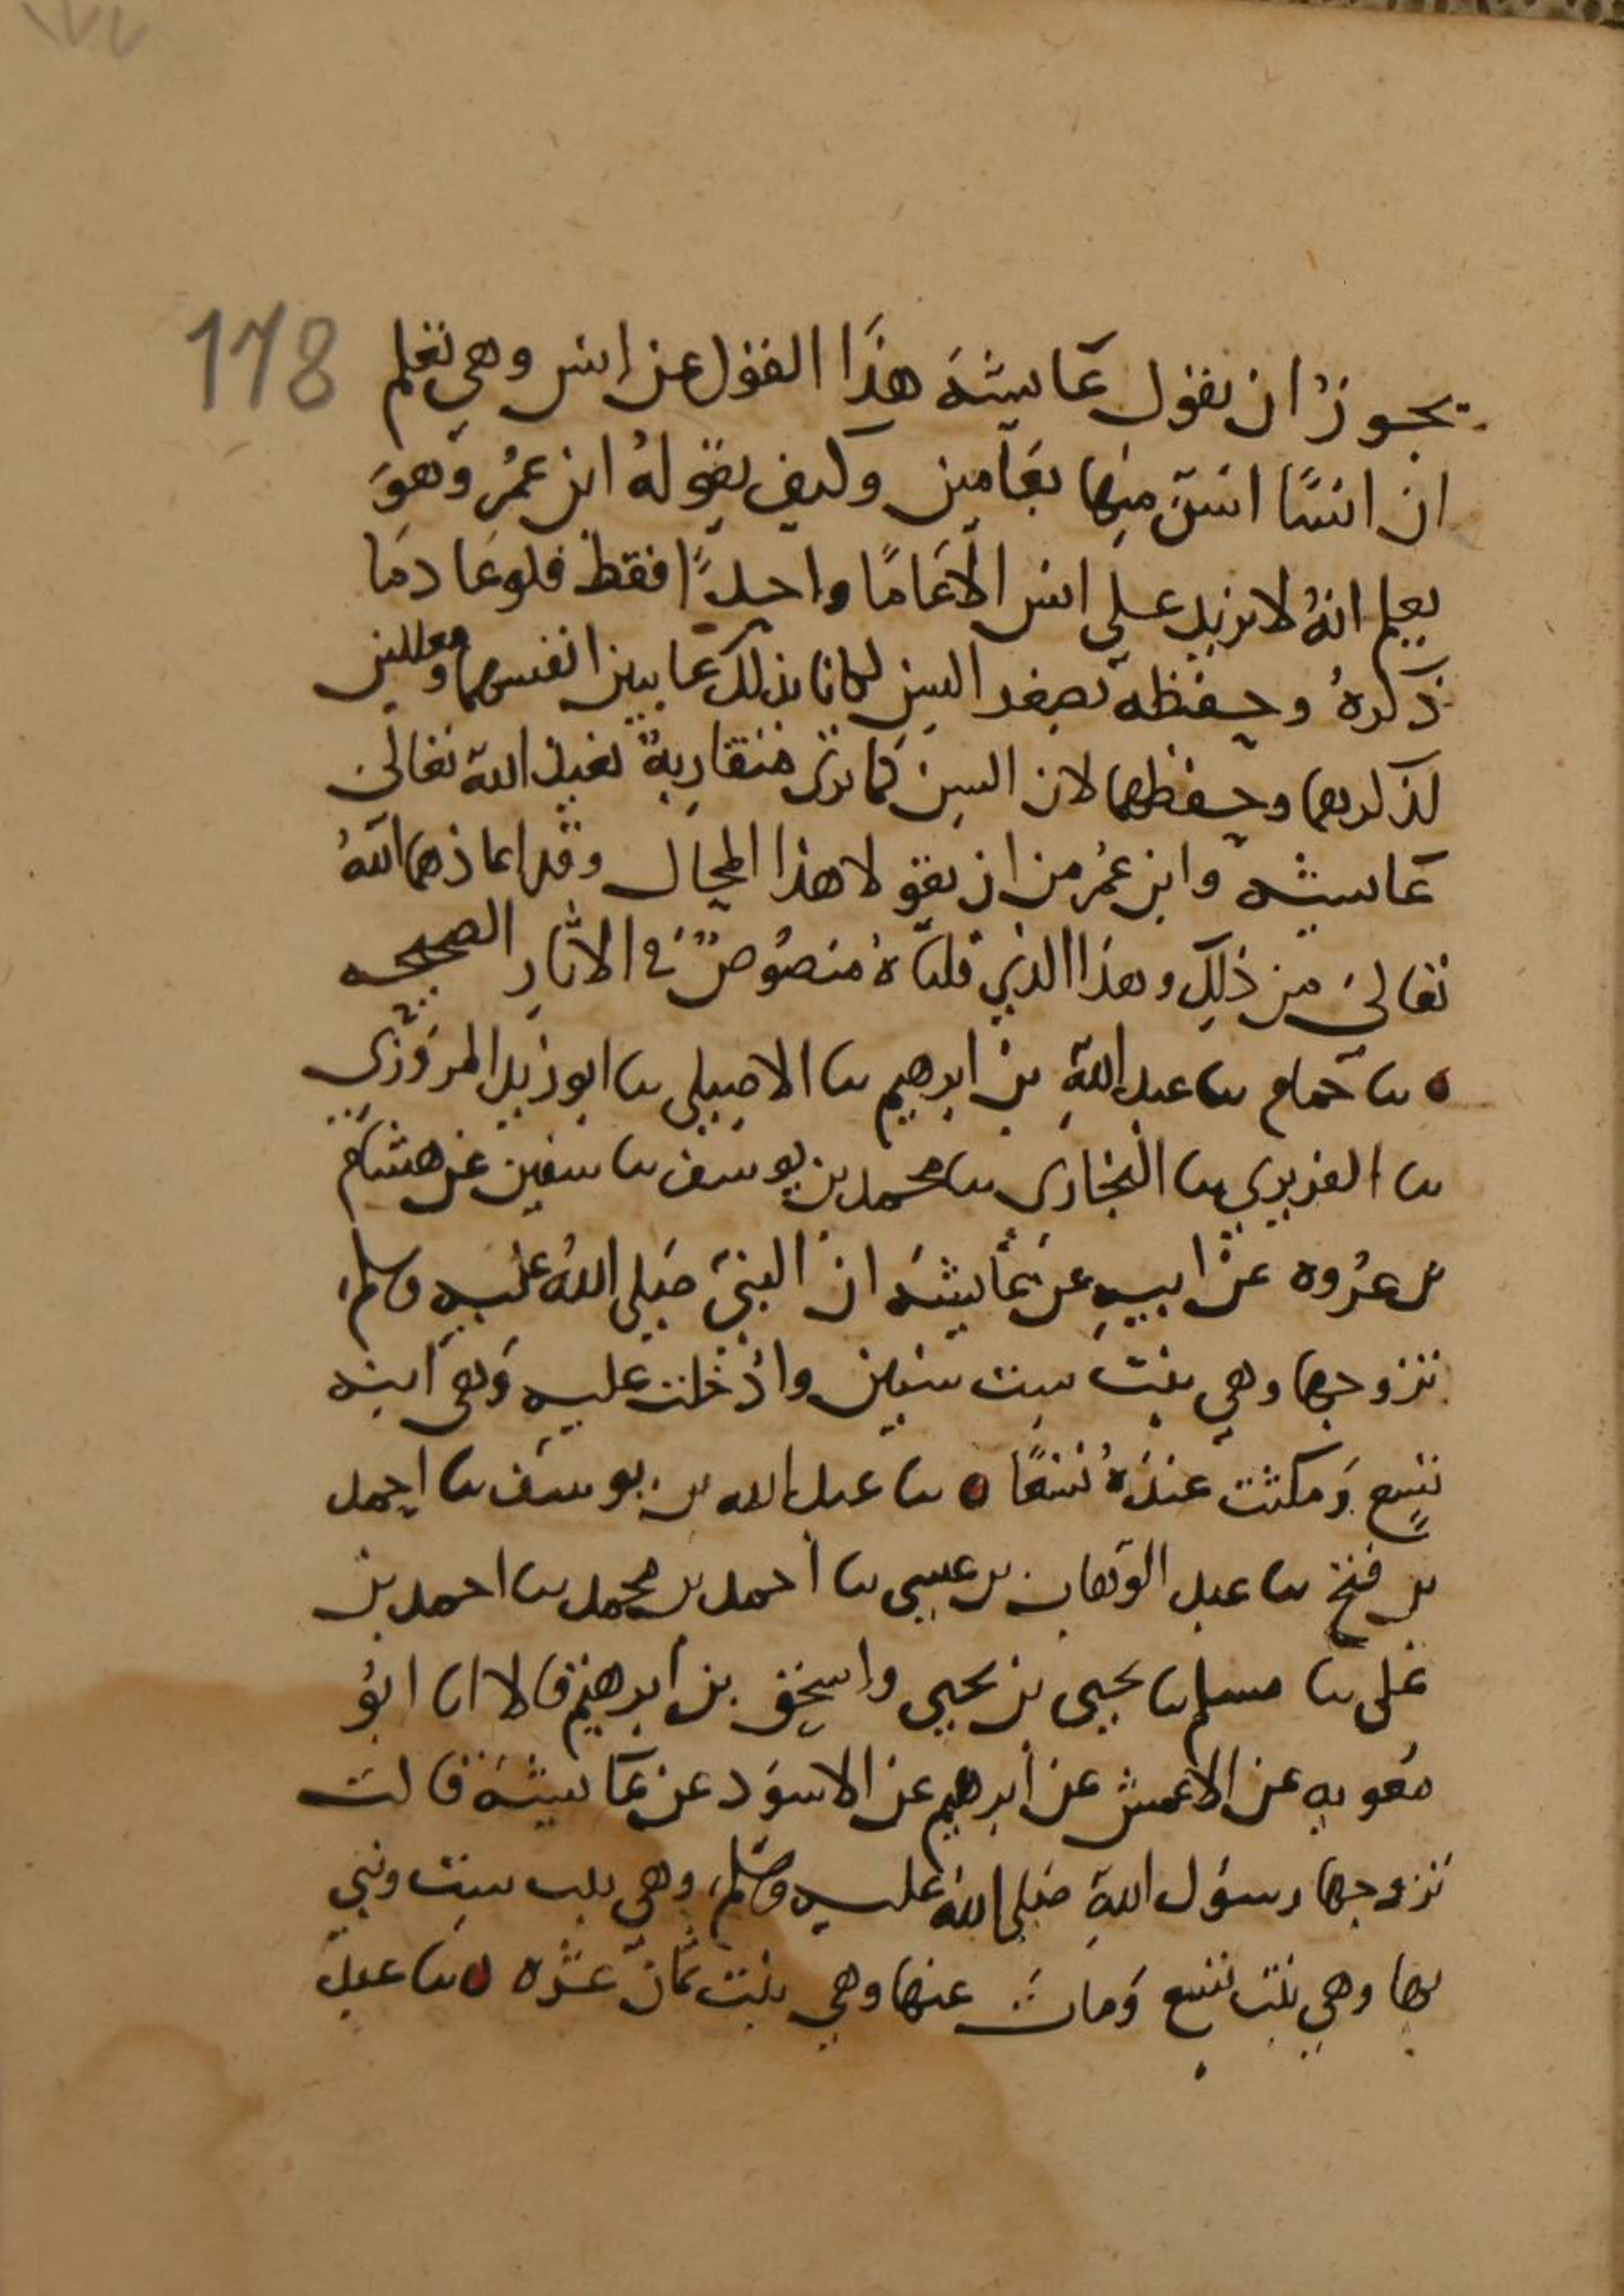 ١٧٧
178
يجوز ان تقول عايشة هذا القول عن انس وهي تعلم
ان انسًا اسن منها بعامين وكيف يقوله ابن عمر وهو
يعلم انه لا يزيد على انس الا عامًا واحدًا فقط فلو عادما
ذكره وحفظه بصغر السن لكانا بذلك عايبين انفسهما ومعللين
لذكرهما وحفظهما لان السن كما ترى متقاربة نعيذ الله تعالى
عايشه وابن عمر من ان يقولا هذا المحال وقد اعاذهما الله
تعالى من ذلك وهذا الذي قلناه منصوص في الاثار الصحيحه
ه نا حمام نا عبد الله بن ابرهيم نا الاصيلي نا ابو زيد المروزي
نا الفربري نا البخاري نا محمد بن يوسف نا سفين عن هشام
بن عروه عن ابيه عن عايشة ان النبي صلى الله عليه وسلم
تزوجها وهي بنت ست سنين وادخلت عليه وهي ابنه
تسع ومكثت عنده تسعًا ه نا عبد الله بن يوسف نا احمد
بن فتح نا عبد الوهاب بن عيسى نا احمد بن محمد نا احمد بن
علي نا مسلم نا يحيى بن يحيى واسحق بن ابرهيم قالا انا ابو
معويه عن الاعمش عن ابرهيم عن الاسود عن عايشة قالت
تزوجها رسول الله صلى الله عليه وسلم وهي بنت ست وبني
بها وهي بنت تسع ومات عنها وهي بنت ثمان عشره ه نا عبد